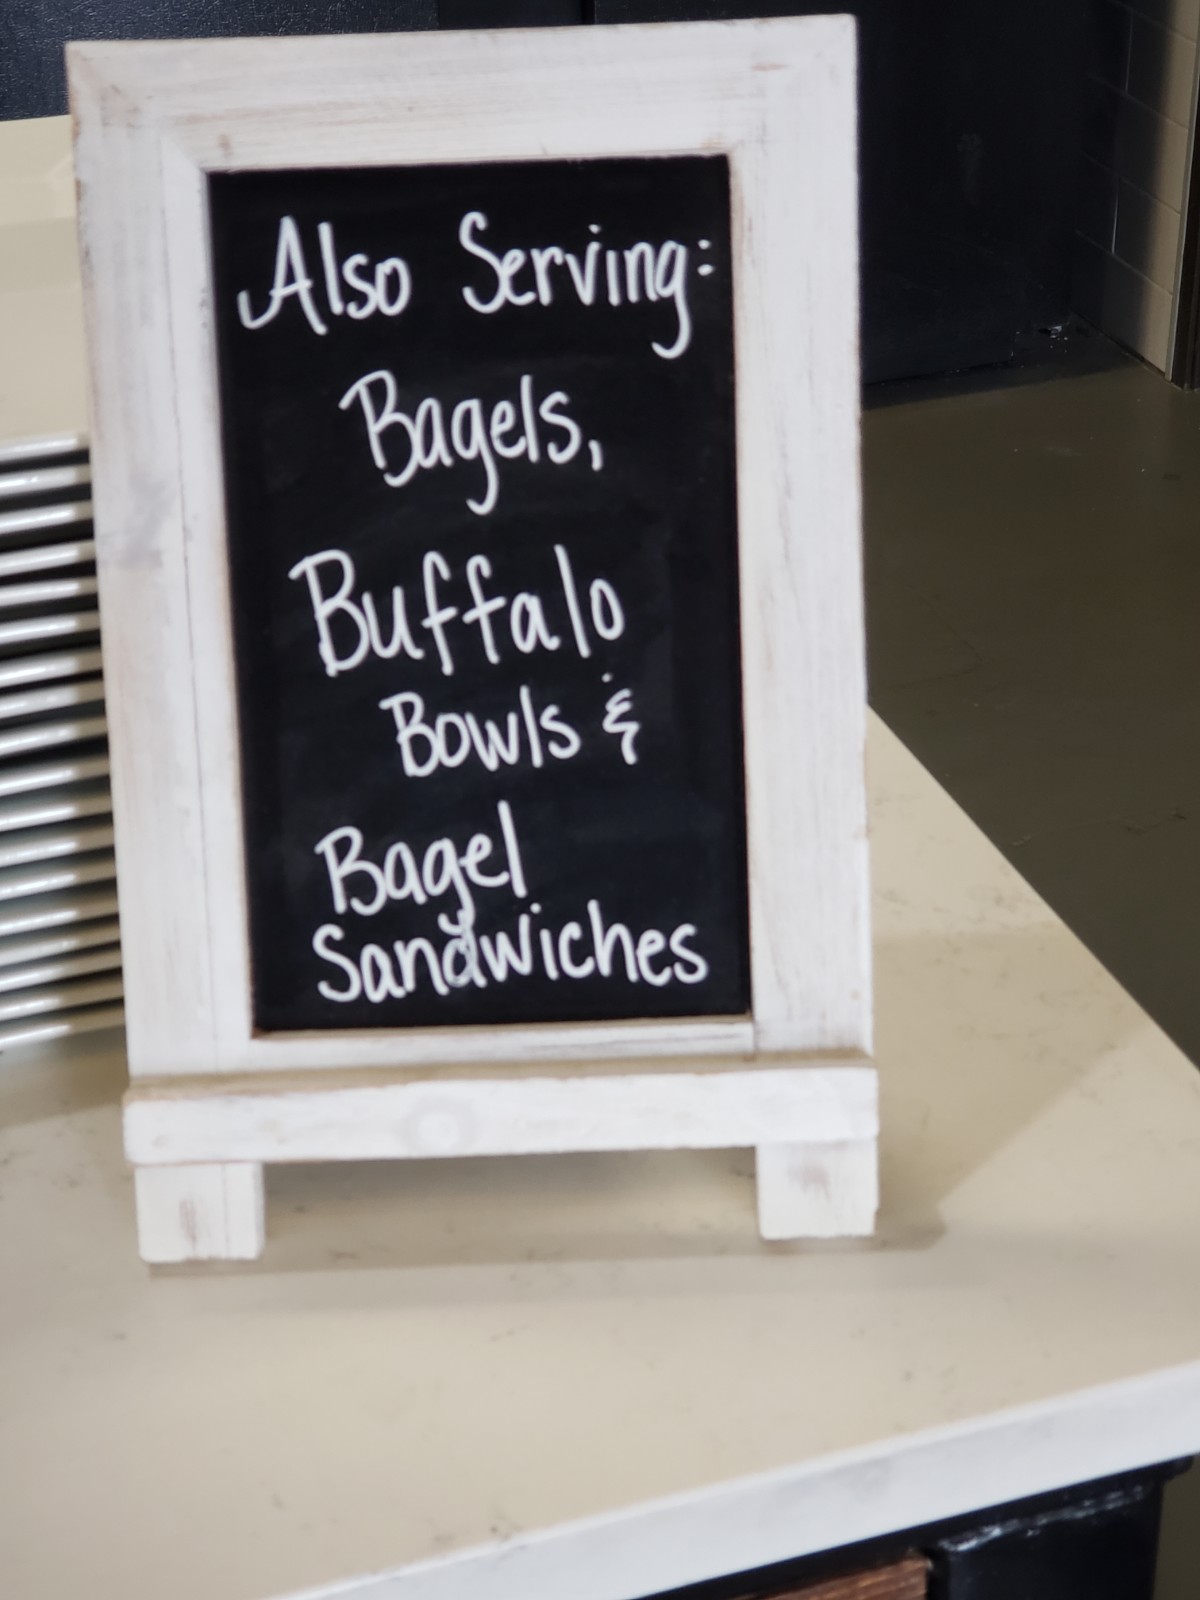 Also Serving:
Bagels,
Buffalo
Bowls &
Bagel
Sandwiches